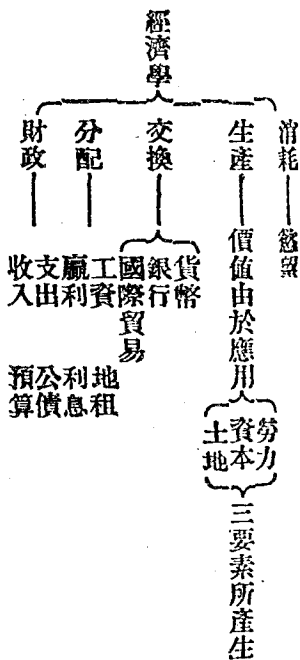 經濟學
消耗 慾望
生產 價値由於應用 勞力 資本 土地 三要素所產生
交換 貨幣 銀行 國際貿易
分配 工資 地租 贏利 利息
財政 支出 公債 收入 預算